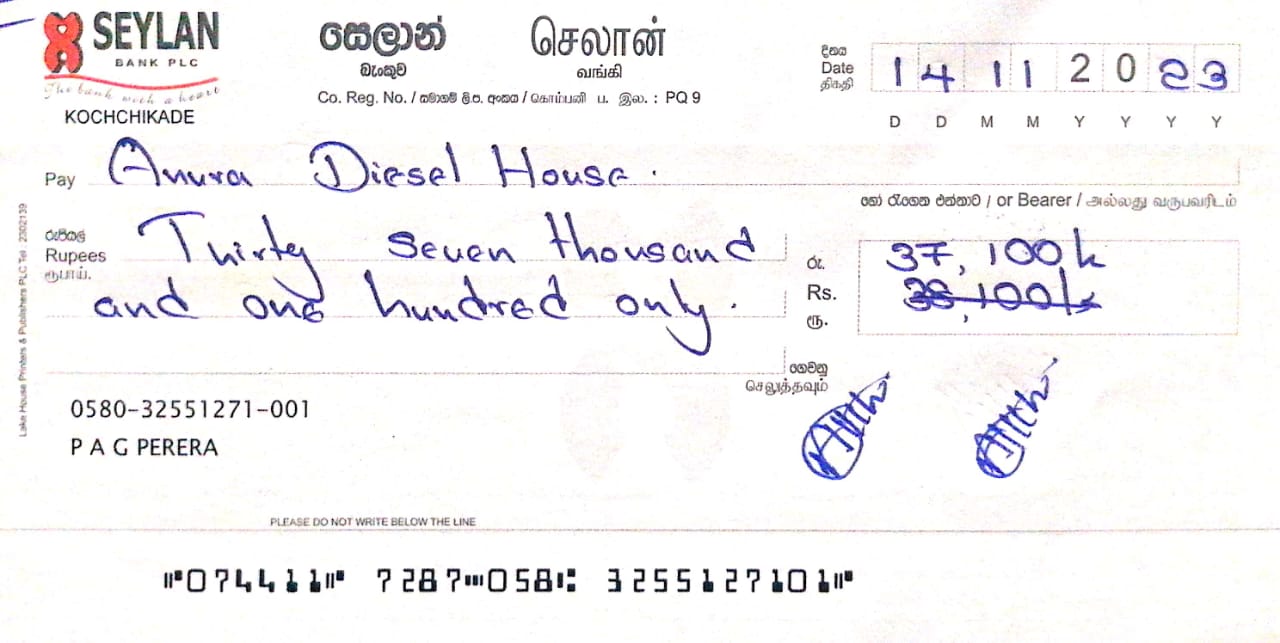 SEYLAN
BANK PLC
The bank with a heart
KOCHCHIKADE
සෙලාන් செலான்
බැංකුව வங்கி
Co. Reg. No. / සමාගම් ලි.ප. අංකය / கொம்பனி ப. இல. : PQ 9
දිනය
Date
திகதி
14 11 2023
D D M M Y Y Y Y
Pay Anura Diesel House.
හෝ රැගෙන එන්නාට / or Bearer / அல்லது வருபவரிடம்
රුපියල්
Rupees
ரூபாய்.
Thirty seven thousand
and one hundred only.
රු.
Rs.
ரூ.
37,100k
38,100k
ගෙවනු
செலுத்தவும்
0580-32551271-001
P A G PERERA
PLEASE DO NOT WRITE BELOW THE LINE
Lake House Printers & Publishers PLC Tel: 2302139
⑈074411⑈ 7287⑉058⑆ 3255127101⑈